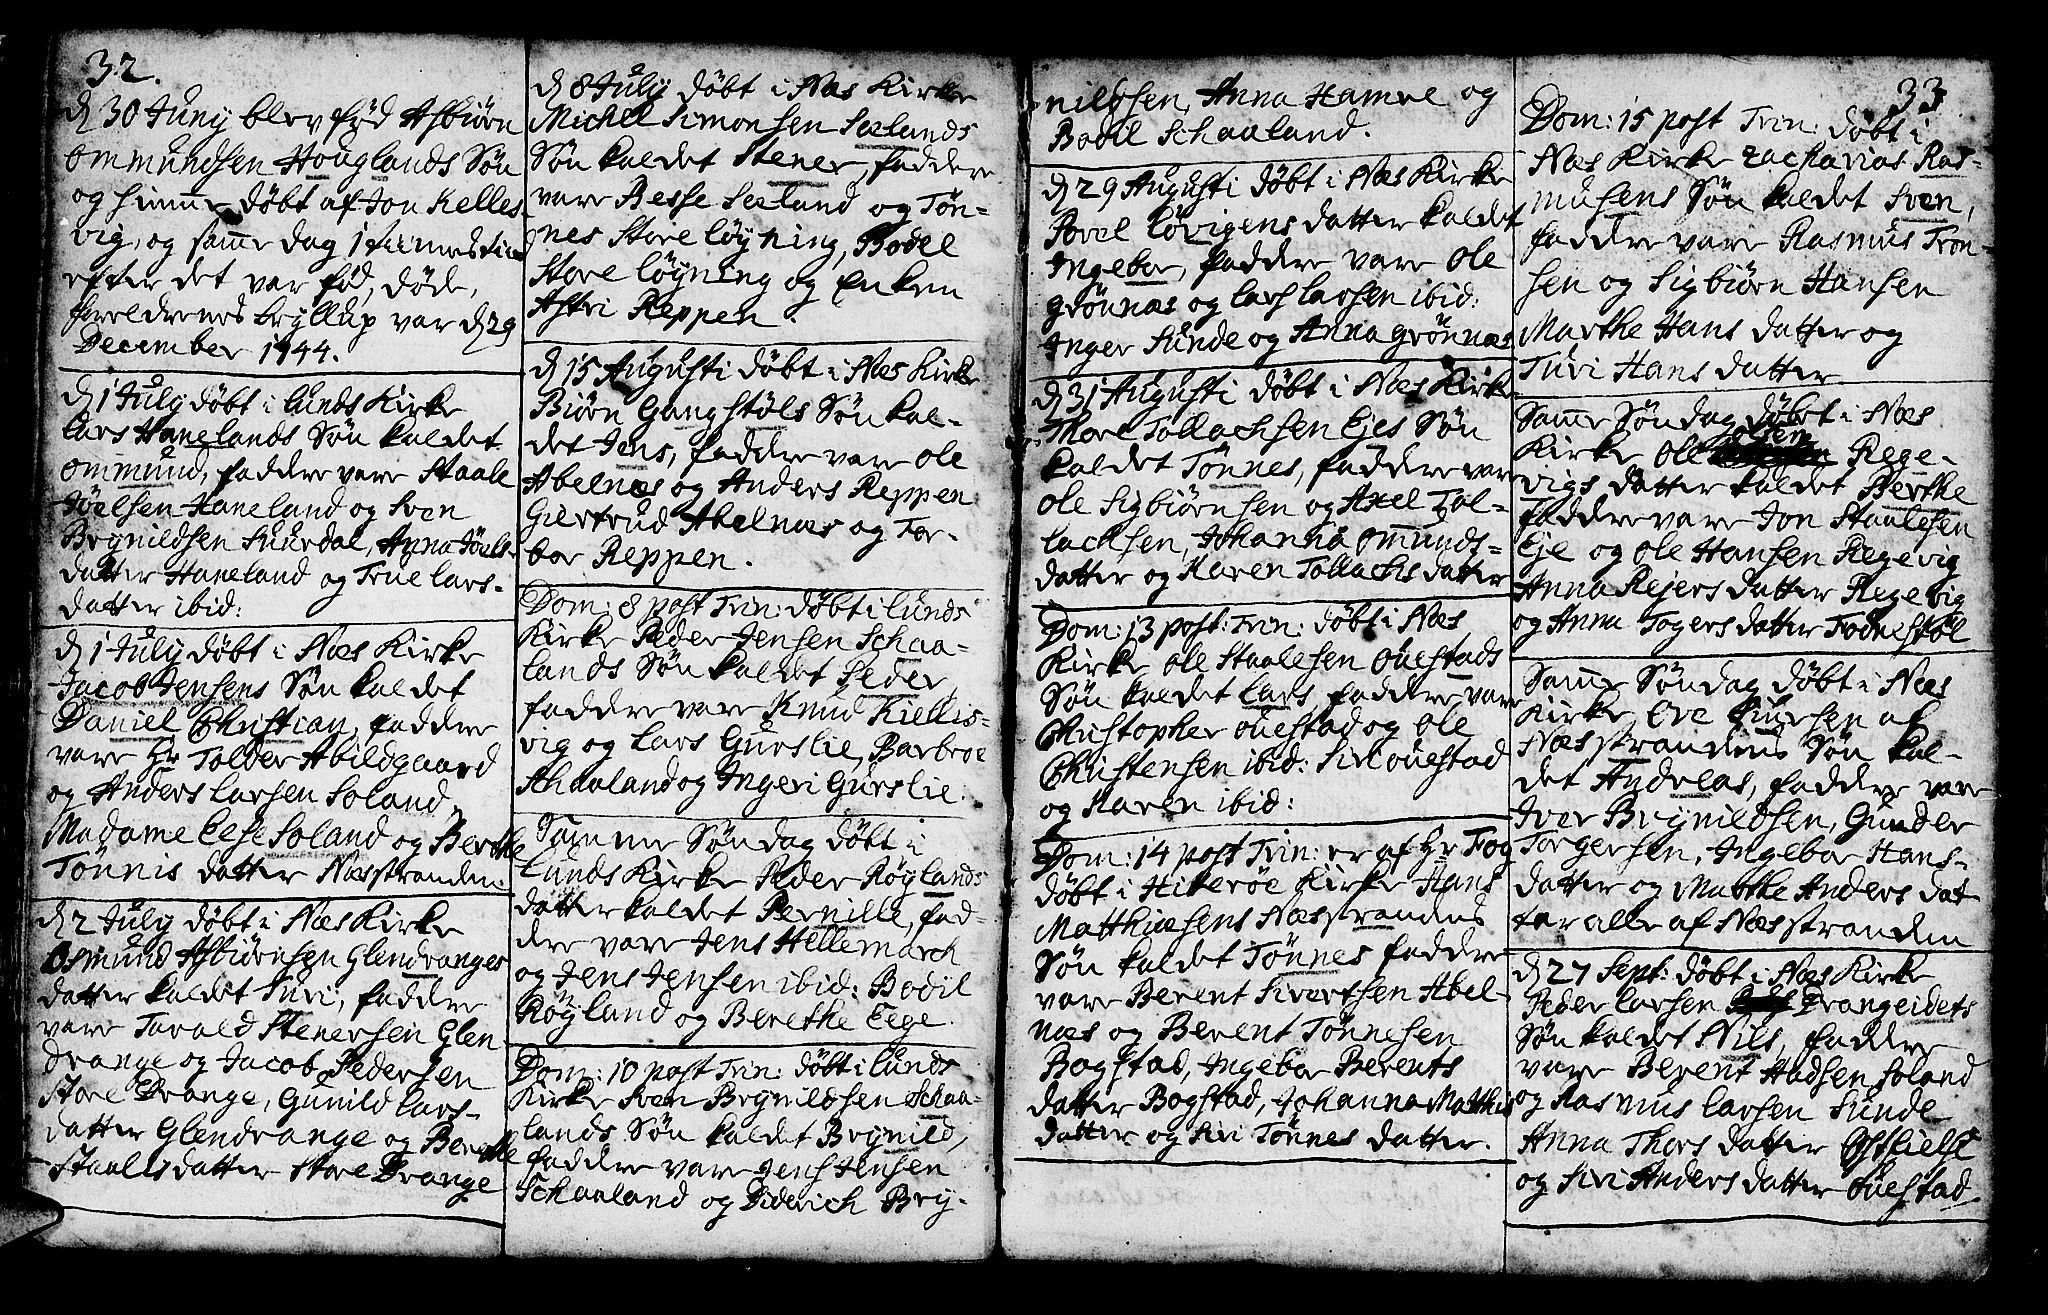 32.
d 30 Juny blev fød Asbiørn
Ommundsen Houglands Søn
og hiemme døbt af Jon Kelles-
vig, og samme dag
efter det var fød, døde,
foreldrenes bryllup var d 29
December 1744.
d 1 July døbt i Lunds Kirke
Lars Hanelands Søn kaldet
Ommund, faddre vare Staale
Jöelsen Haneland og Sven
Brynildsen Suurdal, Anna Jöels-
datter Haneland og True Lars-
datter ibid:
d 1 July døbt i Næs Kirke
Jacob Jensens Søn kaldet
Daniel Christian, faddre
vare Hr Tolder Abildgaard
og Anders Larsen Soland,
Madame Eege Soland og Berthe
Tønnis datter Næsstranden.
d 2 July døbt i Næs Kirke
Osmund Asbiörnsen Glendranges
datter kaldet Turi, faddre
vare Tarald Stenersen Glen-
drange og Jacob Pedersen
Store Drange, Gunild Lars-
datter Glendrange og Berethe
Staalisdatter Store Drange
d 8 July døbt i Næs Kirke
Michel Simonsen Sælands
Søn kaldet Stener, faddre
vare Besse Sæland og Tøn-
nes Store løyning, Bodel
Store løyning og Enken
Astri Reppen.
d 15 Augusti døbt i Næs Kirke
Biørn Gangstøls Søn kal-
det Jens, faddre vare Ole
Abelnæs og Anders Reppen
Giertrud Abelnæs og Tor-
bor Reppen.
Dom: 8 post Trin: døbt i Lunds
Kirke Peder Jensen Schaa-
lands Søn kaldet Peder,
faddre vare Knud Kiellis-
vig og Lars Gurslie, Barbroe
Schaaland og Ingeri Gurslie.
Samme Søndag døbt i
Lunds Kirke Peder Røylands
datter kaldet Pernille, fad-
dre vare Jens Hellemarch
og Jens Jensen ibid: Bodil
Røyland og Berethe Eege.
Dom: 10 post Trin: døbt i Lunds
Kirke Sven Brynildsen Schaa-
lands Søn kaldet Brynild,
faddre vare Jens Jensen
Schaaland og Diderich Bry-
33
nildsen, Anna Hamre og
Bodil Schaaland.
d 29 Augusti døbt i Næs Kirke
Povel Løvigens datter kaldet
Ingebor, faddre vare Ole
Grönnæs og Lars Larsen ibid:
Inger Sunde og Anna Grönnæs
d 31 Augusti døbt i Næs Kirke
Thore Tollachsen Ejes Søn
kaldet Tønnes, faddre vare
Ole Sigbiørnsen og Axel Tol-
lachsen, Johanna Ommunds-
datter og Karen Tollachs datter
Dom: 13 post: Trin: døbt i Næs
Kirke Ole Staalesen Ouestads
Søn kaldet Lars, faddre vare
Christopher Ouestad og Ole
Christensen ibid: Siri Ouestad
og Karen ibid:
Dom: 14 post Trin: er af Hr Fog
døbt i Hiterøe Kirke Hans
Matthiæsens Næsstrandens
Søn kaldet Tønnes faddre
vare Berent Sivertsen Abel-
næs og Berent Tønnesen
Bogstad, Ingebor Berents
datter Bogstad, Johanna Matthis
datter og Siri Tønnes datter.
Dom: 15 post Trin: døbt i
Næs Kirke Zacharias Ras-
musens Søn kaldet Sven,
faddre vare Rasmus Tron-
sen og Sigbiørn Hansen
Marthe Hans datter og
Turi Hans datter
Samme Søndag døbt i Næs
Kirke Ole Rege-
vigs datter kaldet Berthe
faddre vare Jon Staalesen
Eje og Ole Hansen Regevig
Anna Rejers datter Regevig
og Anna datter
Samme Søndag døbt i Næs
Kirke, af
Næsstrandens Søn kal-
det Andreas, faddre vare
Iver Brynildsen, Gunder
Torgersen, Ingebor Hans-
datter og Marthe Anders dat
ter alle af Næsstranden
d 27 Sept: døbt i Næs Kirke
Peder Larsen Drangeidets
Søn kaldet Nils, faddre
vare Berent Hadsen Soland
og Rasmus Larsen Sunde
Anna Thors datter
og Siri Anders datter Ouestad.